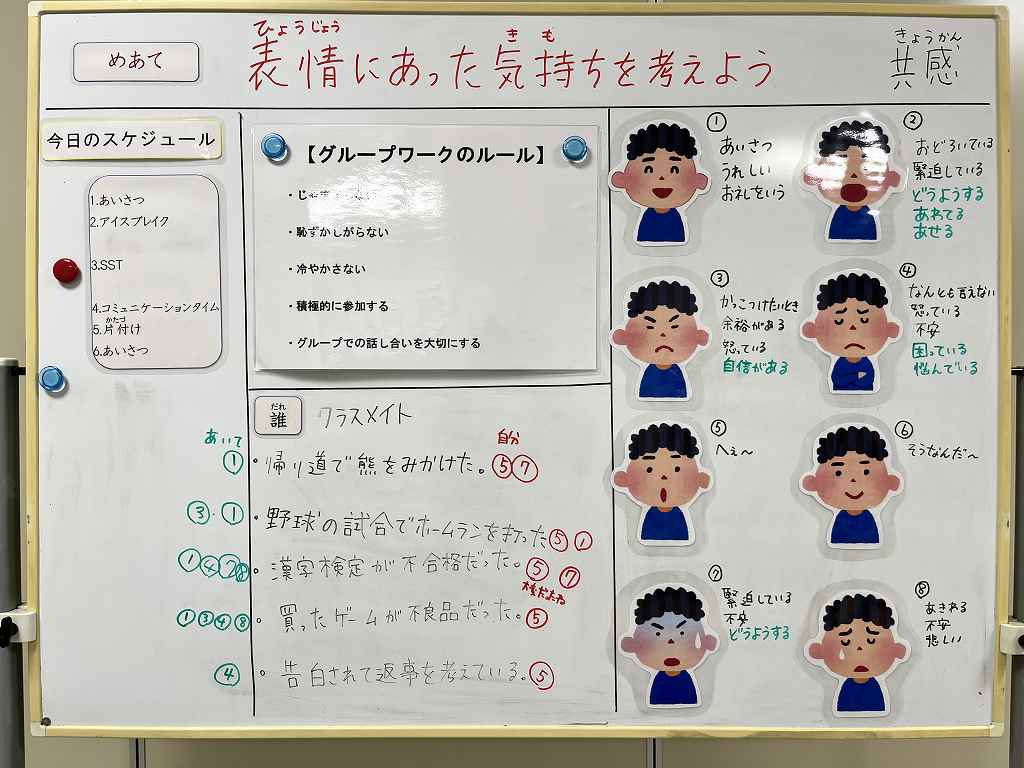 ひょうじょう
き も
きょうかん
めあて
表情にあった気持ちを考えよう
共感
今日のスケジュール
1.あいさつ
2.アイスブレイク
3.SST
4.コミュニケーションタイム
かたづ
5.片付け
6.あいさつ
【グループワークのルール】
・恥ずかしがらない
・冷やかさない
・積極的に参加する
・グループでの話し合いを大切にする
だれ
誰
クラスメイト
あいて
自分
① ・帰り道で熊をみかけた。⑤⑦
③・① ・野球の試合でホームランを打った⑤①
①④②⑧ ・漢字検定が不合格だった。⑤⑦
①③④⑧ ・買ったゲームが不良品だった。⑤
④ ・告白されて返事を考えている。⑤
①
あいさつ
うれしい
お礼をいう
②
おどろいている
緊迫している
どうようする
あわてる
あせる
③
かっこつけたいとき
余裕がある
怒っている
自信がある
④
なんとも言えない
怒っている
不安
困っている
悩んでいる
⑤
へぇ〜
⑥
そうなんだ〜
⑦
緊迫している
不安
どうようする
⑧
あきれる
不安
悲しい